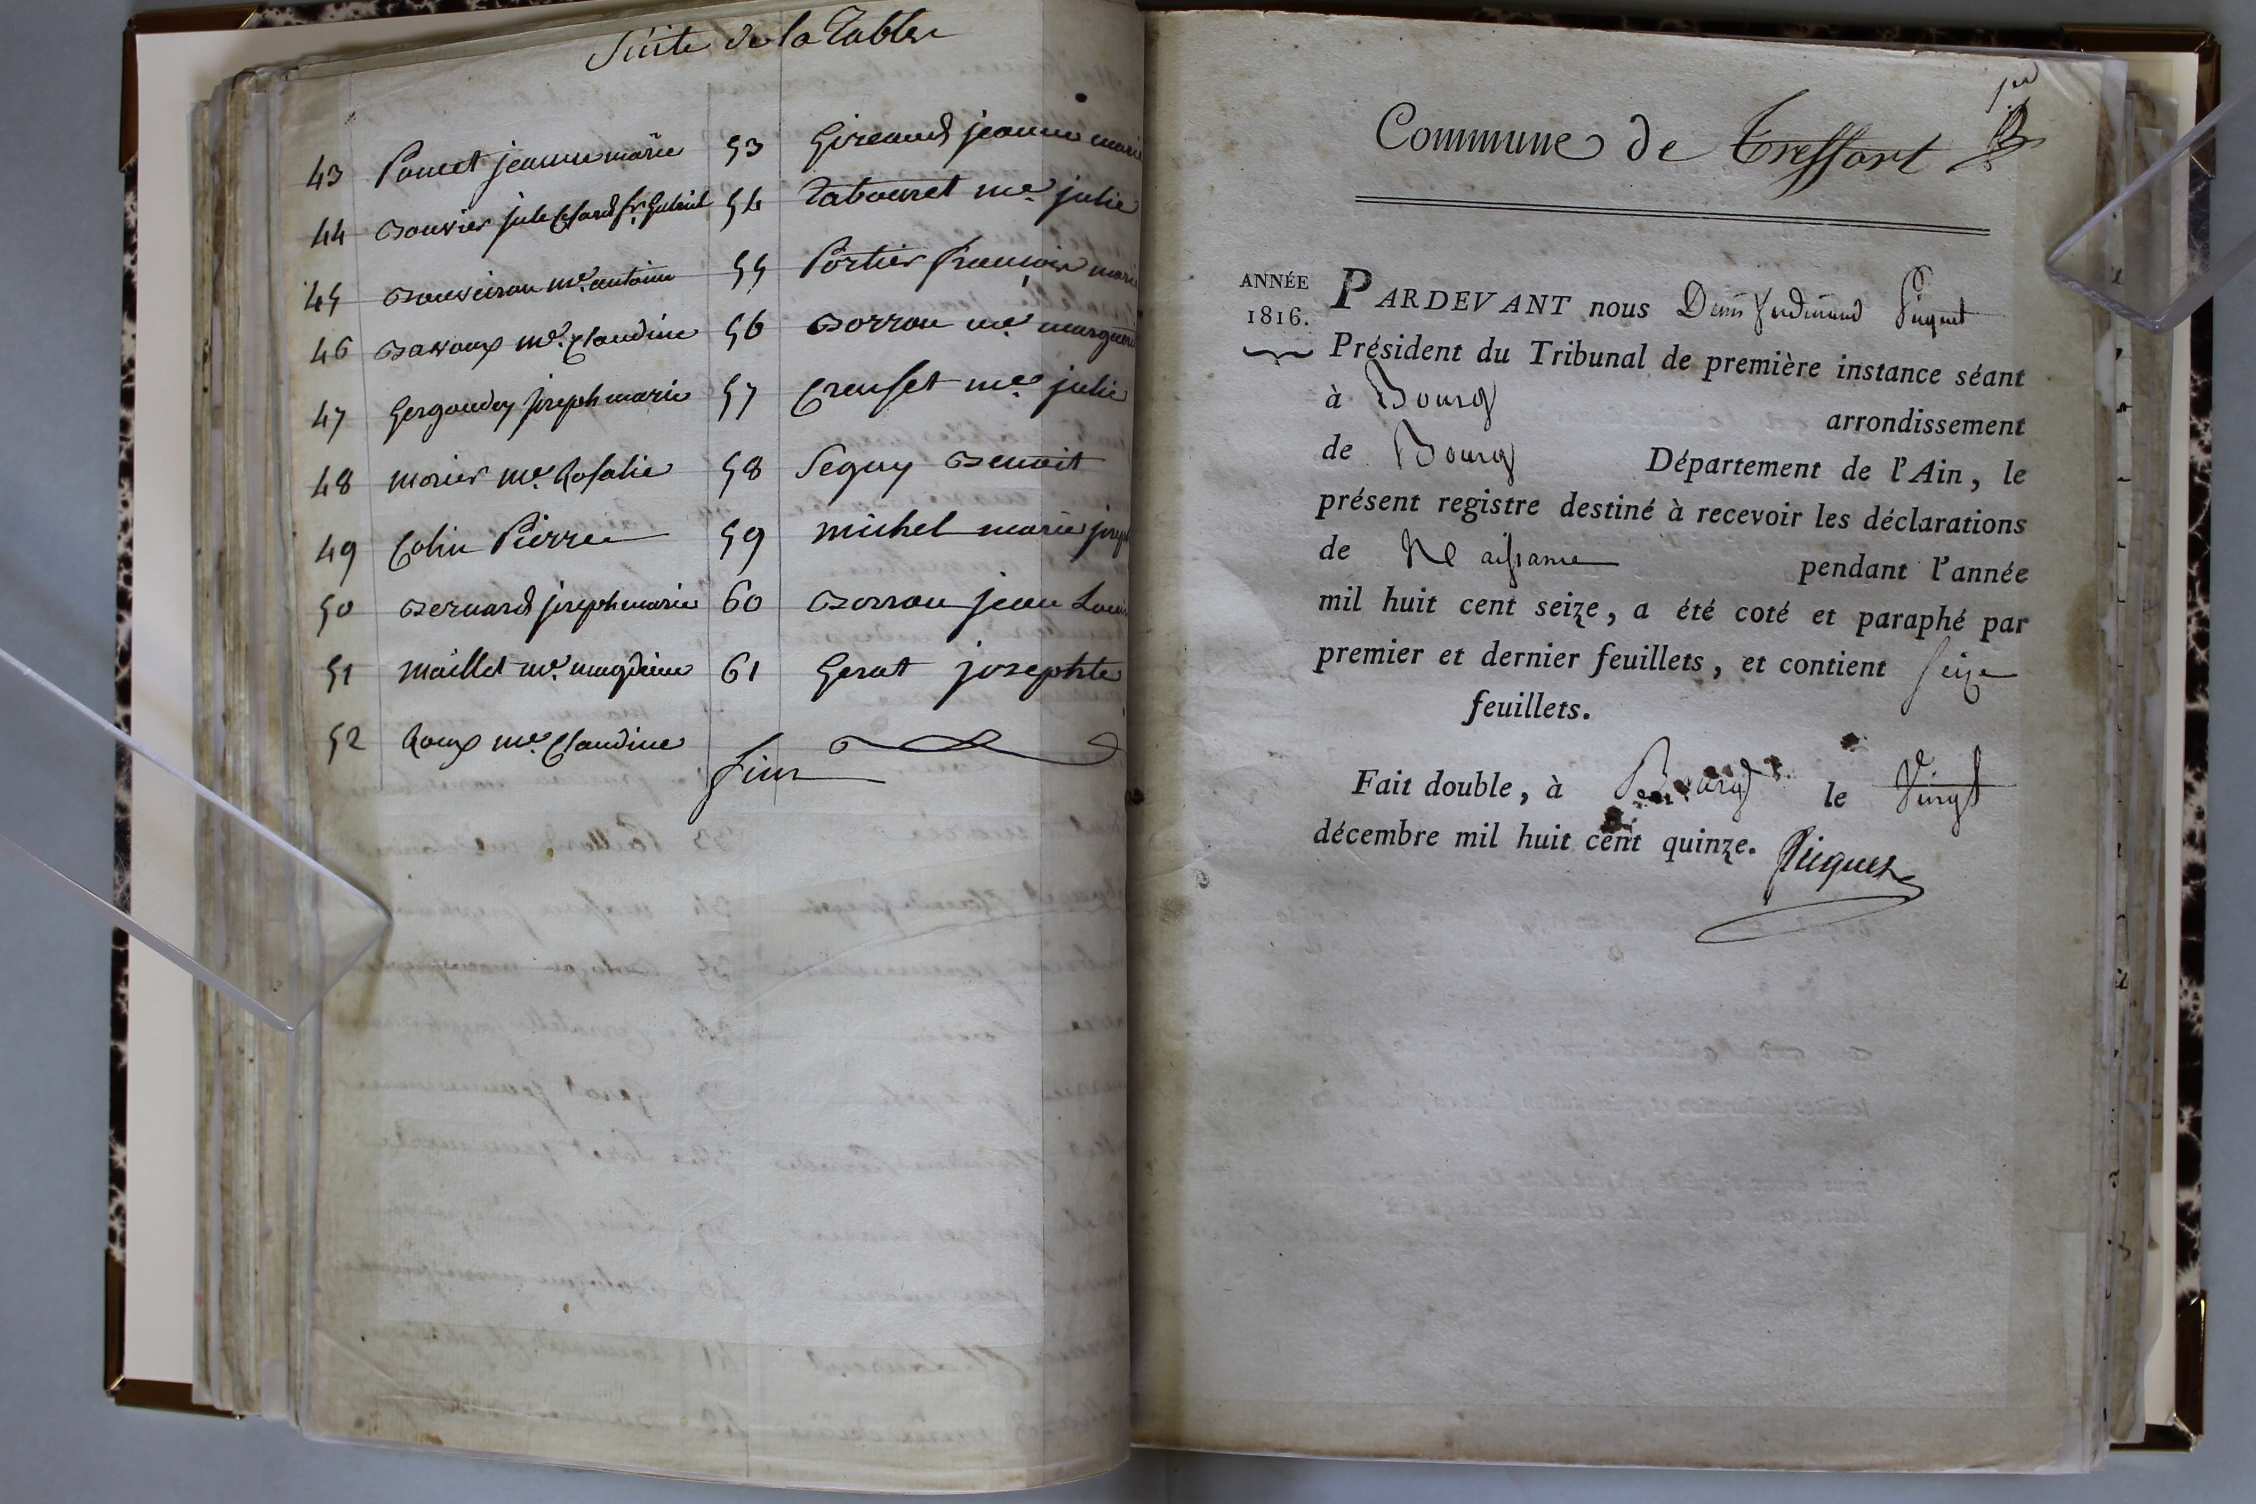 Suite de la Table
43 Poncet jeanne marie
44 Bouvier jule Cesard fs. Gabriel
45 Bouveiron me. antoine
46 Bavoux me. Claudine
47 Gergondey joseph marie
48 morier me. Rosalie
49 Colin Pierre
50 Bernard joseph marie
51 maillet me. magdeine
52 Roux me. Claudine
53 Gireaud jeanne marie
54 Tabouret me. julie
55 Portier françoise marie
56 Borron me. marguerite
57 Creuset me. julie
58 Seguy Benoit
59 michel marie joseph
60 Borron jean Louis
61 Gerat josephte
fin
1er
Commune de Treffort
ANNÉE
1816.
PARDEVANT nous Denis Ferdinand Piquet
Président du Tribunal de première instance séant
à Bourg arrondissement
de Bourg Département de l'Ain, le
présent registre destiné à recevoir les déclarations
de Naissance pendant l'année
mil huit cent seize, a été coté et paraphé par
premier et dernier feuillets, et contient seize
feuillets.
Fait double, à Bourg le Vingt
décembre mil huit cent quinze. Piquet